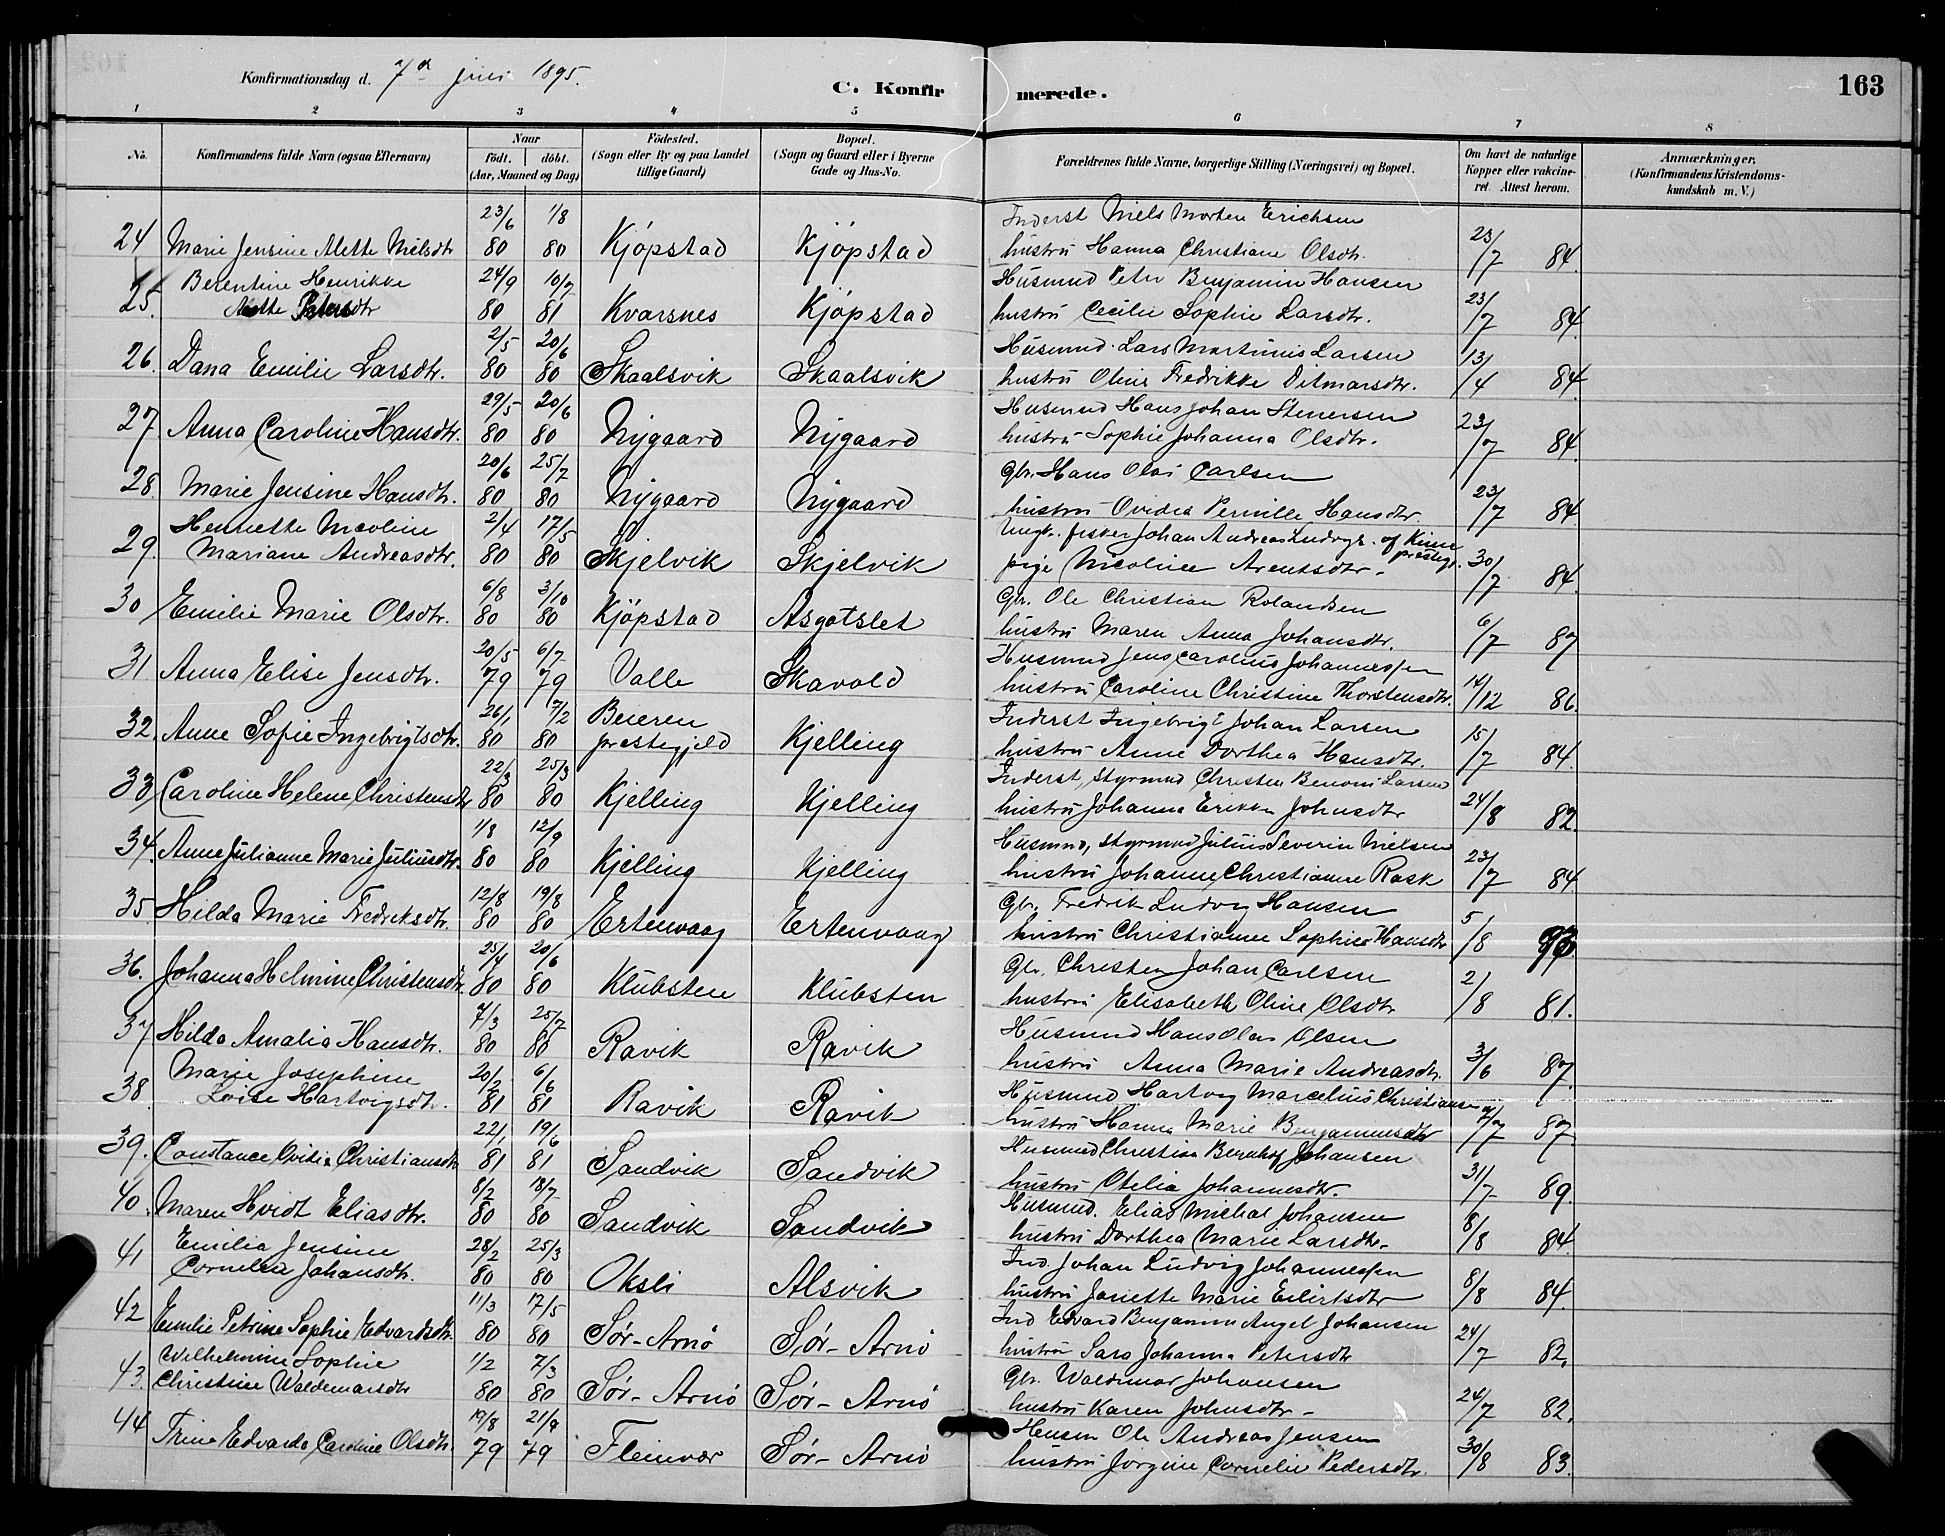 Konfirmationsdag d. 7de juni 1895.
C. Konfirmerede.
163
1 2 3 4 5 6 7 8
No.
Konfirmandens fulde Navn (ogsaa Efternavn)
Naar
födt. döbt.
(Aar, Maaned og Dag)
Födested.
(Sogn eller By og paa Landet
tillige Gaard)
Bopæl.
(Sogn og Gaard eller i Byerne
Gade og Hus-No.
Forældrenes fulde Navne, borgerlige Stilling (Næringsvei) og Bopæl.
Om havt de naturlige
Kopper eller vakcine-
ret. Attest herom.
Anmærkninger,
(Konfirmandens Kristendoms-
kundskab m. V.)
23/6 1/8 Inderst Niels Morten Erichsen
24 Marie Jensine Alette Nilsdtr 80 80 Kjöpstad Kjöpstad hustru Hanna Christiane Olsdtr. 23/7 84.
Berentine Henrikke 24/9 10/7 Husmnd Peter Benjamin Hansen
25. Mette Petersdtr 80 81 Kvarsnes Kjöpstad hustru Cecilie Sophie Larsdtr. 23/7 84.
2/5 20/6 Husmnd. Lars Martinus Larsen
26. Dana Emilie Larsdtr. 80 80 Skaalsvik Skaalsvik hustru Oline Fredrikke Ditmarsdtr. 13/4 84.
29/5 20/6 Husmnd Hans Johan Stenersen
27. Anna Caroline Hansdtr. 80 80 Nygaard Nygaard hustru Sophie Johanna Olsdtr. 23/7 84.
20/6 25/7 Gbr. Hans Olai Carlsen
28. Marie Jensine Hansdtr. 80 80 Nygaard Nygaard hustru Ovidia Pernille Hansdtr. 23/7 84
Henriette Nicoline 2/4 17/5 Ungk. fisker Johan Andreas Ludvigs. af
29. Mariane Andreasdtr. 80 80 Skjelvik Skjelvik pige Nicoline Arentsdtr prestegj. 30/7 84
6/8 3/10 Gbr. Ole Christian Rolandsen
30 Emilie Marie Olsdtr. 80 80 Kjöpstad Asgotslet hustru Maren Anna Johansdtr. 6/7 87
20/5 6/7 Husmnd Jens Carolius Johannessen
31 Anna Elise Jensdtr. 79 79 Valle Skavold hustru Caroline Christine Thorstensdtr. 14/12 86.
26/1 7/2 Beieren Inderst Ingebrigt Johan Larsen
32. Anne Sofie Ingebrigtsdtr. 80 80 prestegjeld Kjelling hustru Anne Dorthea Hansdtr. 15/7 84.
22/3 25/3 Inderst, styrmnd Christen Benoni Larsen
33 Caroline Helene Christensdtr 80 80 Kjelling Kjelling hustru Johanna Erikka Johnsdtr 24/8 82.
1/8 12/9 Husmnd, styrmnd Julius Severin Nielsen
34. Anne Julianne Marie Juliusdtr. 80 80 Kjelling Kjelling hustru Johanne Christianne Rask 23/7 84
12/8 19/8 Gbr. Fredrik Ludvig Hansen
35. Hilda Marie Fredriksdtr. 80 80 Ertenvaag Ertenvaag hustru Christianne Sophie Hansdtr 5/8
25/4 20/6 Gbr. Christen Johan Carlsen
36. Johanna Helmine Christensdtr. 80 80 Klubsten Klubsten hustru Elisabeth Oline Olsdtr 2/8 81.
7/3 25/7 Husmnd Hans Olai Olsen
37 Hilda Amalia Hansdtr. 80 80 Ravik Ravik hustru Anna Marie Andreasdtr. 3/6 87.
Marie Josephine 20/2 6/6 Husmnd Hartvig Marcelius Christiansen
38. Lovise Hartvigsdtr. 81 81 Ravik Ravik hustru Hanna Marie Benjaminsdtr 87
22/1 19/6 Husmnd Christian Bernhof Johansen
39. Constance Ovidia Christiansdtr 81 81 Sandvik Sandvik hustru Otelia Johannesdtr. 31/7 89.
8/2 18/7 Husmnd. Elias Michal Johansen
40. Maren Hvidt Eliasdtr. 80 80 Sandvik Sandvik hustru Dorthea Marie Larsdtr. 8/8 84.
Emilia Jensine 28/2 25/3 Ind. Johan Ludvig Johannessen
41 Cornelia Johansdtr. 80 80 Oksli Alsvik hustru Jariette Marie Eilertsdtr 8/8 84.
11/3 17/5 Ind Edvard Benjamin Angel Johansen
42 Emilie Petrine Sophie Edvardsdtr. 80 80 Sör-Arnö Sör-Arnö hustru Sara Johanna Petersdtr 24/7 82.
Wilhelmine Sophie 1/2 7/3 Gbr. Waldemar Johansen
43. Christine Waldemarsdtr 80 80 Sör-Arnö Sör-Arnö hustru Karen Johnsdtr 24/7 82.
19/8 21/9 Ole Andreas Jensen
44 Trine Edvarda Caroline Olsdtr. 79 79 Fleinvær Sör-Arnö hustru Jorgine Cornelie Pedersdtr. 30/8 83.